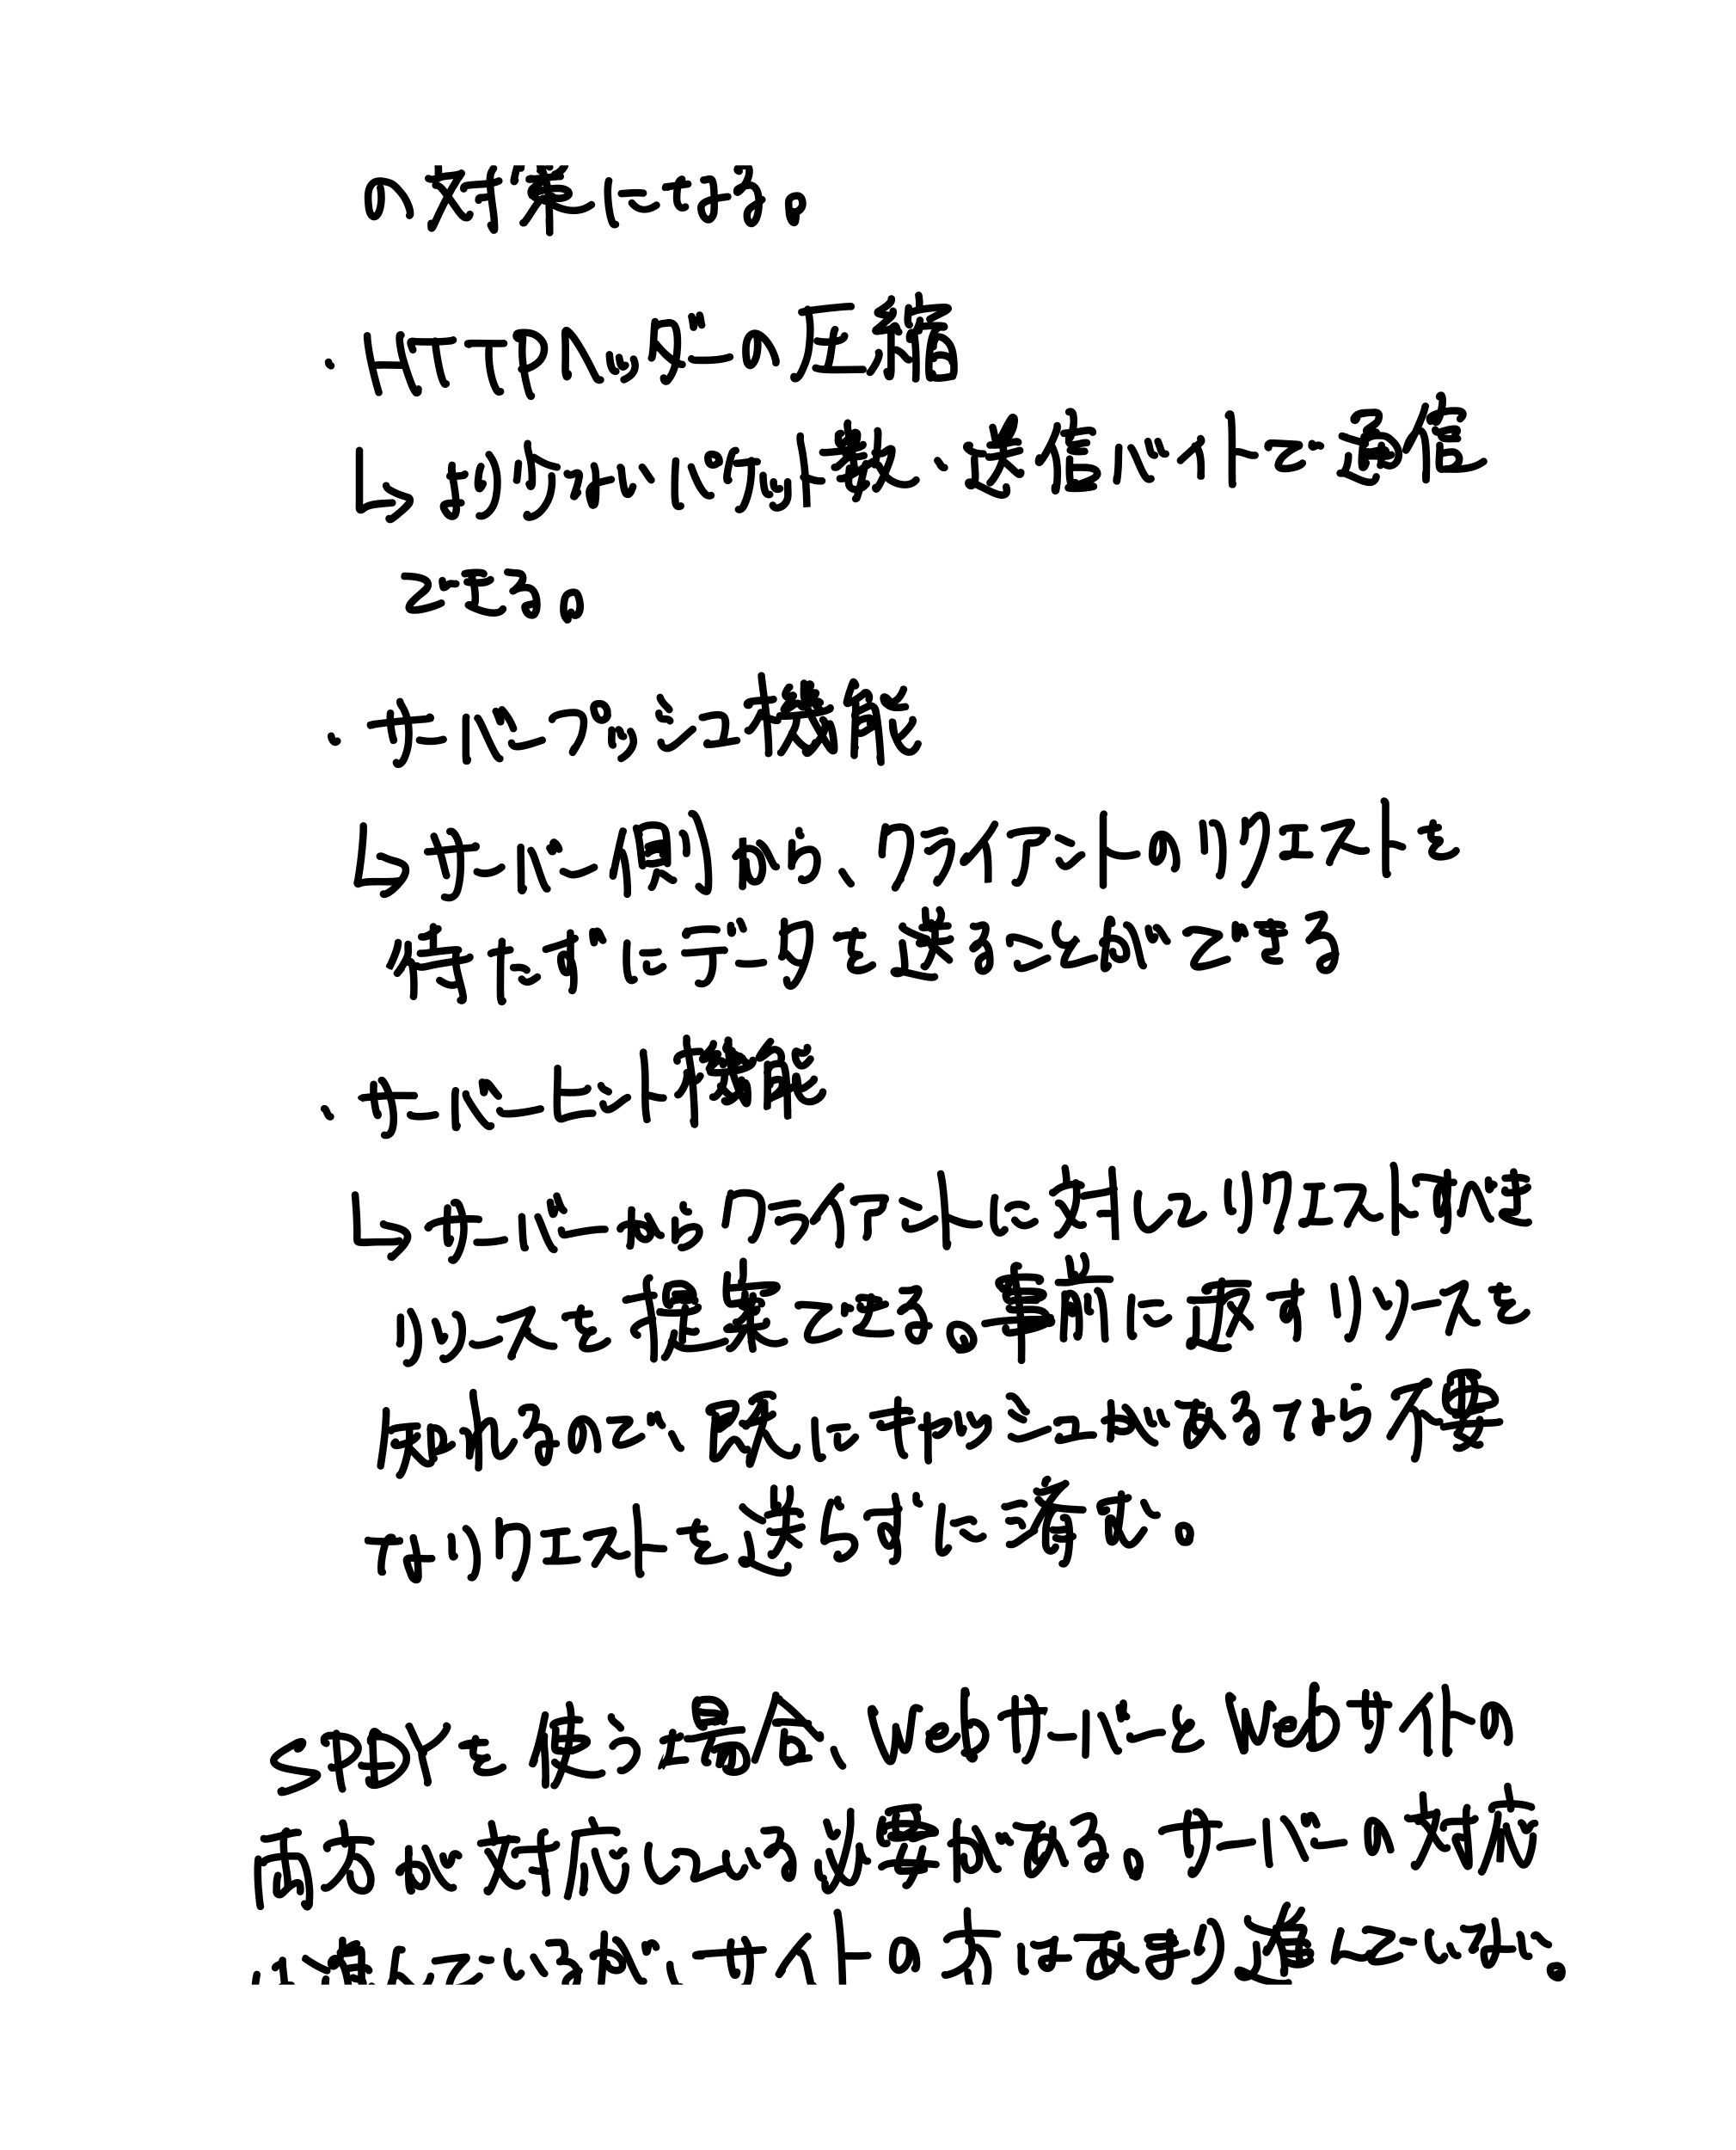 の対策になる。
・HTTPヘッダーの圧縮
↳より少ないパケット数・送信バイトで通信
できる。
・サーバープッシュ機能
↳サーバー側から、クライアントのリクエストを
待たずにデータを送ることができる
・サーバーヒント機能
↳サーバーからクライアントに対してリクエストすべき
リソースを提案できる。事前に返すリソースを
知れるので、既にキャッシュがあるなら不要
なリクエストを送らずに済む。
SPDYを使う場合、WebサーバーとWebサイトの
両方が対応している必要がある。サーバーの対応
は進んでいるが、サイトの方はあまり進んでいない。